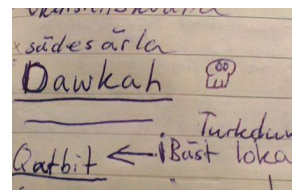 sädesärla
Dawkah
Turkdur
Qatbit ← Bäst loka